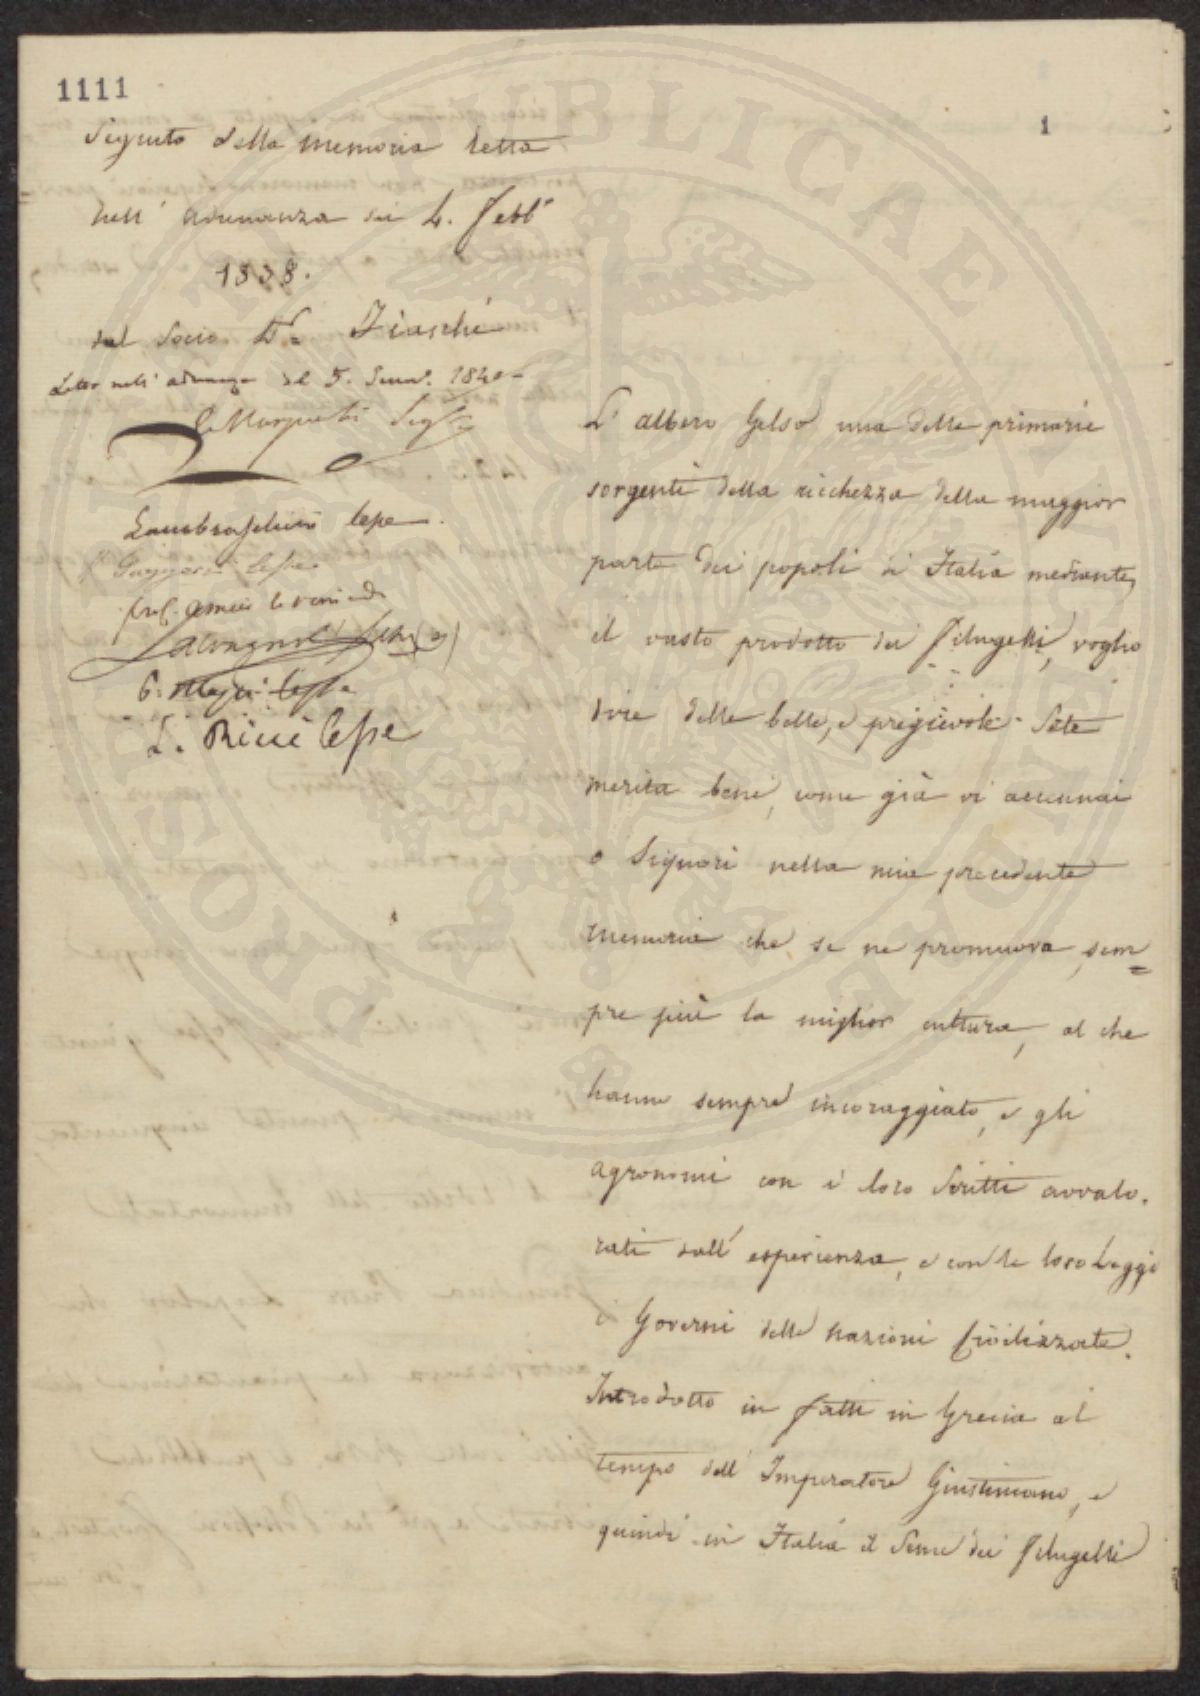 1111
1
Seguito della memoria letta
nell' adunanza dei 4. Febb.º
1838.
dal Socio D.r Fiaschi
Letta nell' adunanza del 5. Genn.º 1840
L. Ricci Cesse
L' albero Gelso una delle primarie
sorgenti della ricchezza della maggior
parte dei popoli di Italia mediante,
il vasto prodotto dei Filugelli, voglio
dire delle belle, e pregievoli Sete
merita bene, come già vi accennai
o Signori nella mia precedente
memoria che se ne promuova sem=
pre più la miglior cultura, al che
hanno sempre incoraggiato, e gli
agronomi con i loro Scritti avvalo.
rati dall' esperienza, e con le loro Leggi
i Governi delle nazioni Civilizzate.
Introdotto in fatti in Grecia al
tempo dell' Imperatore Giustiniano, e
quindi in Italia il Seme dei Filugelli
PROSPERITATI PUBLICAE AUGENDAE